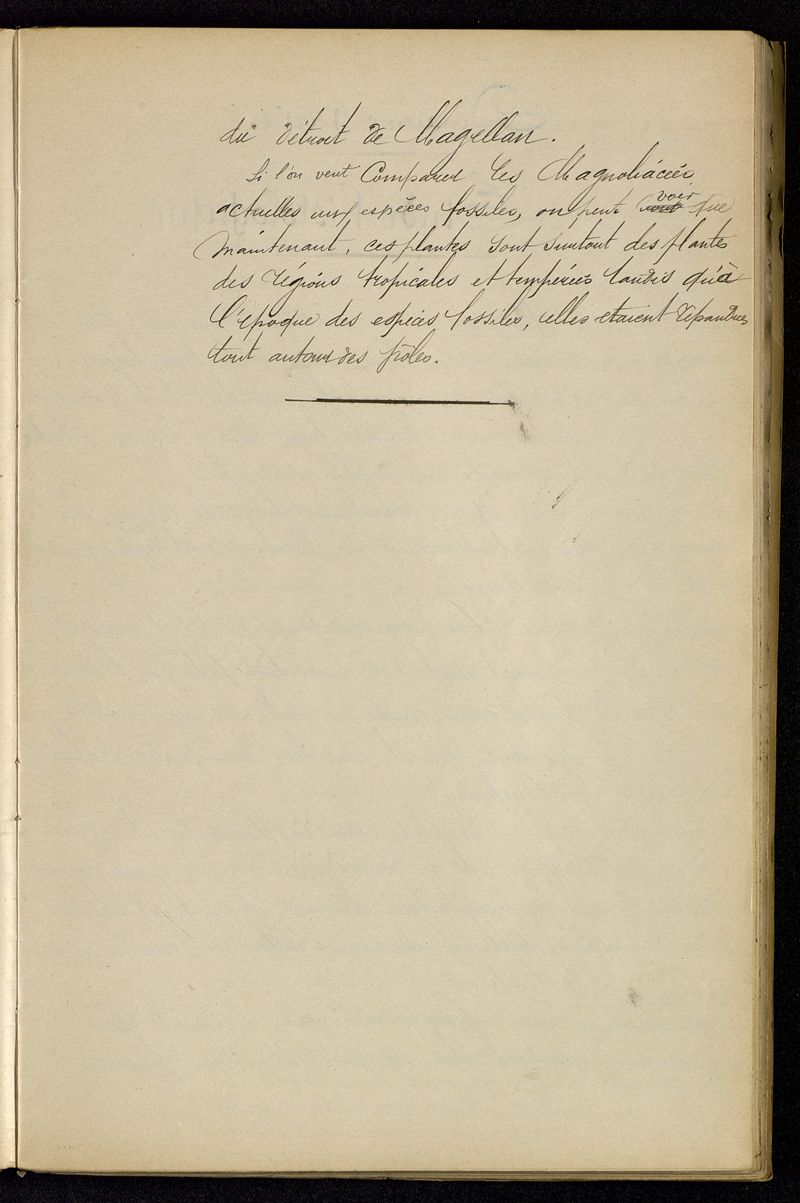 du détroit de Magellan.
Si l'on veut Comparer les Magnoliacées
actuelles aux espèces fossiles, on peut voir que
maintenant, ces plantes sont surtout des plantes
des régions tropicales et tempérées tandis qu'à
l'époque des espèces fossiles, elles étaient répandues
tout autour des pôles.